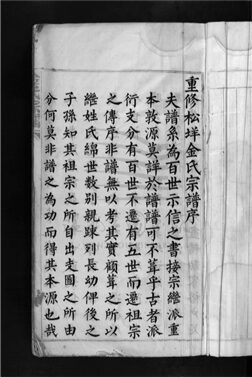 重修松垟金氏宗譜序
夫譜系為百世示信之書接宗繼派重
本敦源莫詳於譜譜可不葺乎古者派
衍支分有百世不遷有五世而遷祖宗
之傳序非譜無以考其實顧葺之所以
維姓氏綿世數列親踈列長幼俾後之
子孫知其祖宗之所自出支圖之所由
分何莫非譜之為功而得其本源也哉